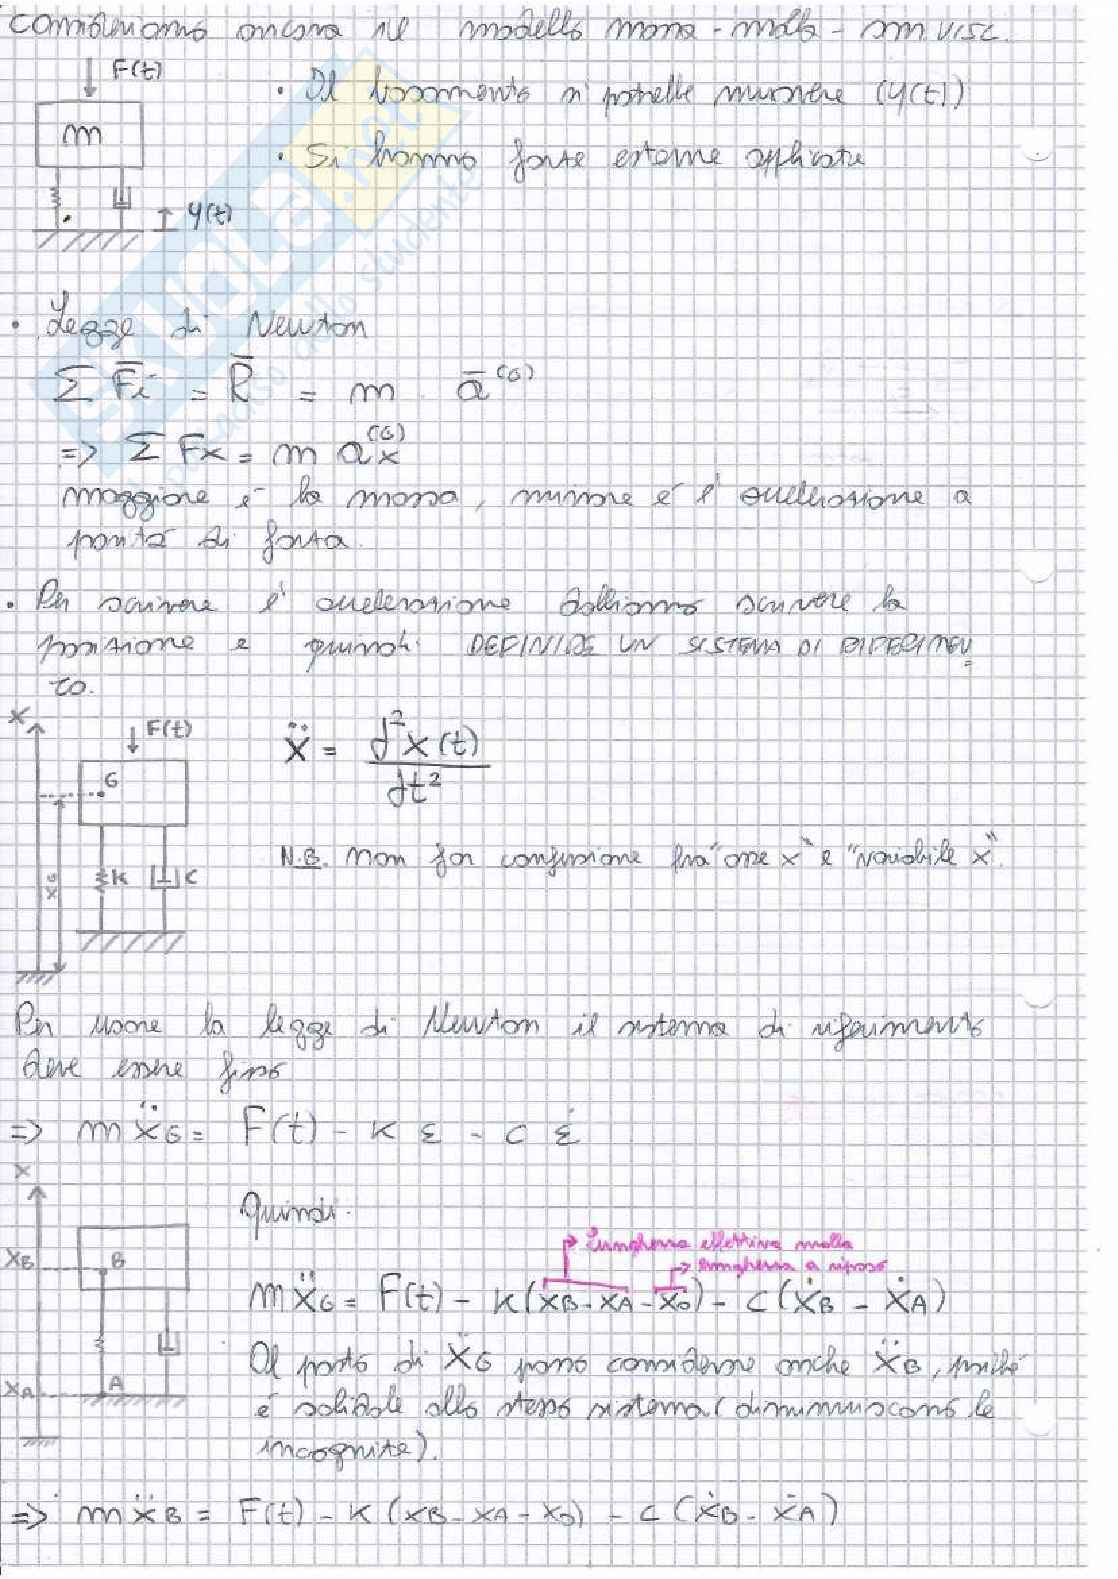 Consideriamo ancora il modello massa-molla-sm.visc.
F(t)
• Il basamento si potrebbe muovere (y(t))
m
• Si hanno forze esterne applicate
y(t)
• Legge di Newton
Σ F̄i = R̄ = m ā^(G)
=> Σ Fx = m ax^(G)
maggiore è la massa, minore è l'accelerazione a
parità di forza.
• Per scrivere l'accelerazione dobbiamo scrivere la
posizione e quindi DEFINIRE UN SISTEMA DI RIFERIMEN
TO.
X
F(t)
ẍ = d²x(t)/dt²
G
N.B. Non far confusione fra "asse x" e "variabile x".
K
C
xG
Per usare la legge di Newton il sistema di riferimento
deve essere fisso
=> m ẍG = F(t) - K ε - C ε̇
x
Quindi:
Lunghezza effettiva molla
lunghezza a riposo
xB
B
m ẍG = F(t) - K(xB - xA - x0) - C(ẋB - ẋA)
Al posto di ẍG posso considerare anche ẍB, poiché
xA
A
è solidale allo stesso sistema (diminuiscono le
incognite).
=> m ẍB = F(t) - K (xB - xA - x0) - C (ẋB - ẋA)
SKUOLA.net